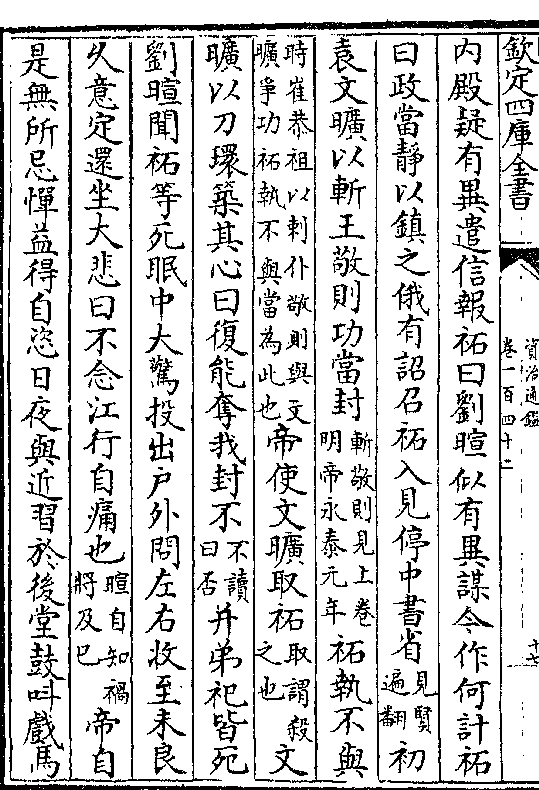 欽定四庫全書
資治通鑑
卷一百四十二
十七
内殿疑有異遣信報祏曰劉暄似有異謀今作何計祏
曰政當靜以鎮之俄有詔召祏入見停中書省見賢遍翻初
袁文曠以斬王敬則功當封斬敬則見上卷明帝永泰元年祏執不與
時崔恭祖以刺仆敬則與文曠爭功祏執不與當為此也帝使文曠取祏取謂殺之也文
曠以刀環築其心曰復能奪我封不不讀曰否并弟祀皆死
劉暄聞祏等死眠中大驚投出户外問左右收至未良
久意定還坐大悲曰不念江行自痛也暄自知禍將及巳帝自
是無所忌憚益得自恣日夜與近習於後堂鼓呌戲馬